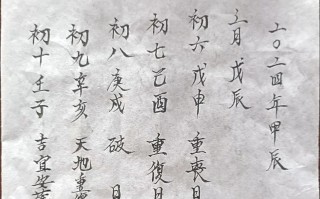 二〇二四年甲辰
三月戊辰
初六戊申 重喪日
初七己酉 重復日
初八庚戌 破日
初九辛亥 天地重
初十壬子 吉宜安